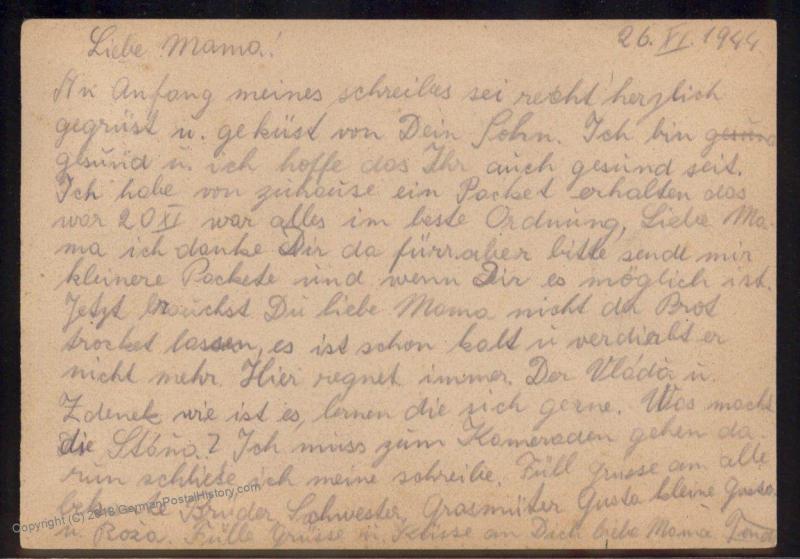 26. XI. 1944
Liebe Mama!
An Anfang meines schreibes sei recht herzlich
gegrüst u. geküst von Dein Sohn. Ich bin gesund
gesund u. ich hoffe das Ihr auch gesund seit.
Ich habe von zuhause ein Packet erhalten das
war 20 XI war alles im beste Ordnung, Liebe Ma-
ma ich danke Dir da fürr aber bitte sende mir
kleinere Packete und wenn Dir es möglich ist.
Jetzt brauchst Du liebe Mama nicht da Brot
trocket lassen, es ist schon kalt u verdierbt er
nicht mehr. Hier regnet immer. Der Vláda u.
Zdenek wie ist es, lernen die sich gerne. Was macht
Die Stáňa? Ich muss zum Kameraden gehen da-
rum schliese ich meine schreibe. Füll Grüsse am alle
bekante Bruder Schwester, Grasmüter Gusta kleine Gusta
u. Roza. Fülle Grüsse u. Küsse an Dich liebe Mama.
Copyright (C) 2018 GermanPostalHistory.com